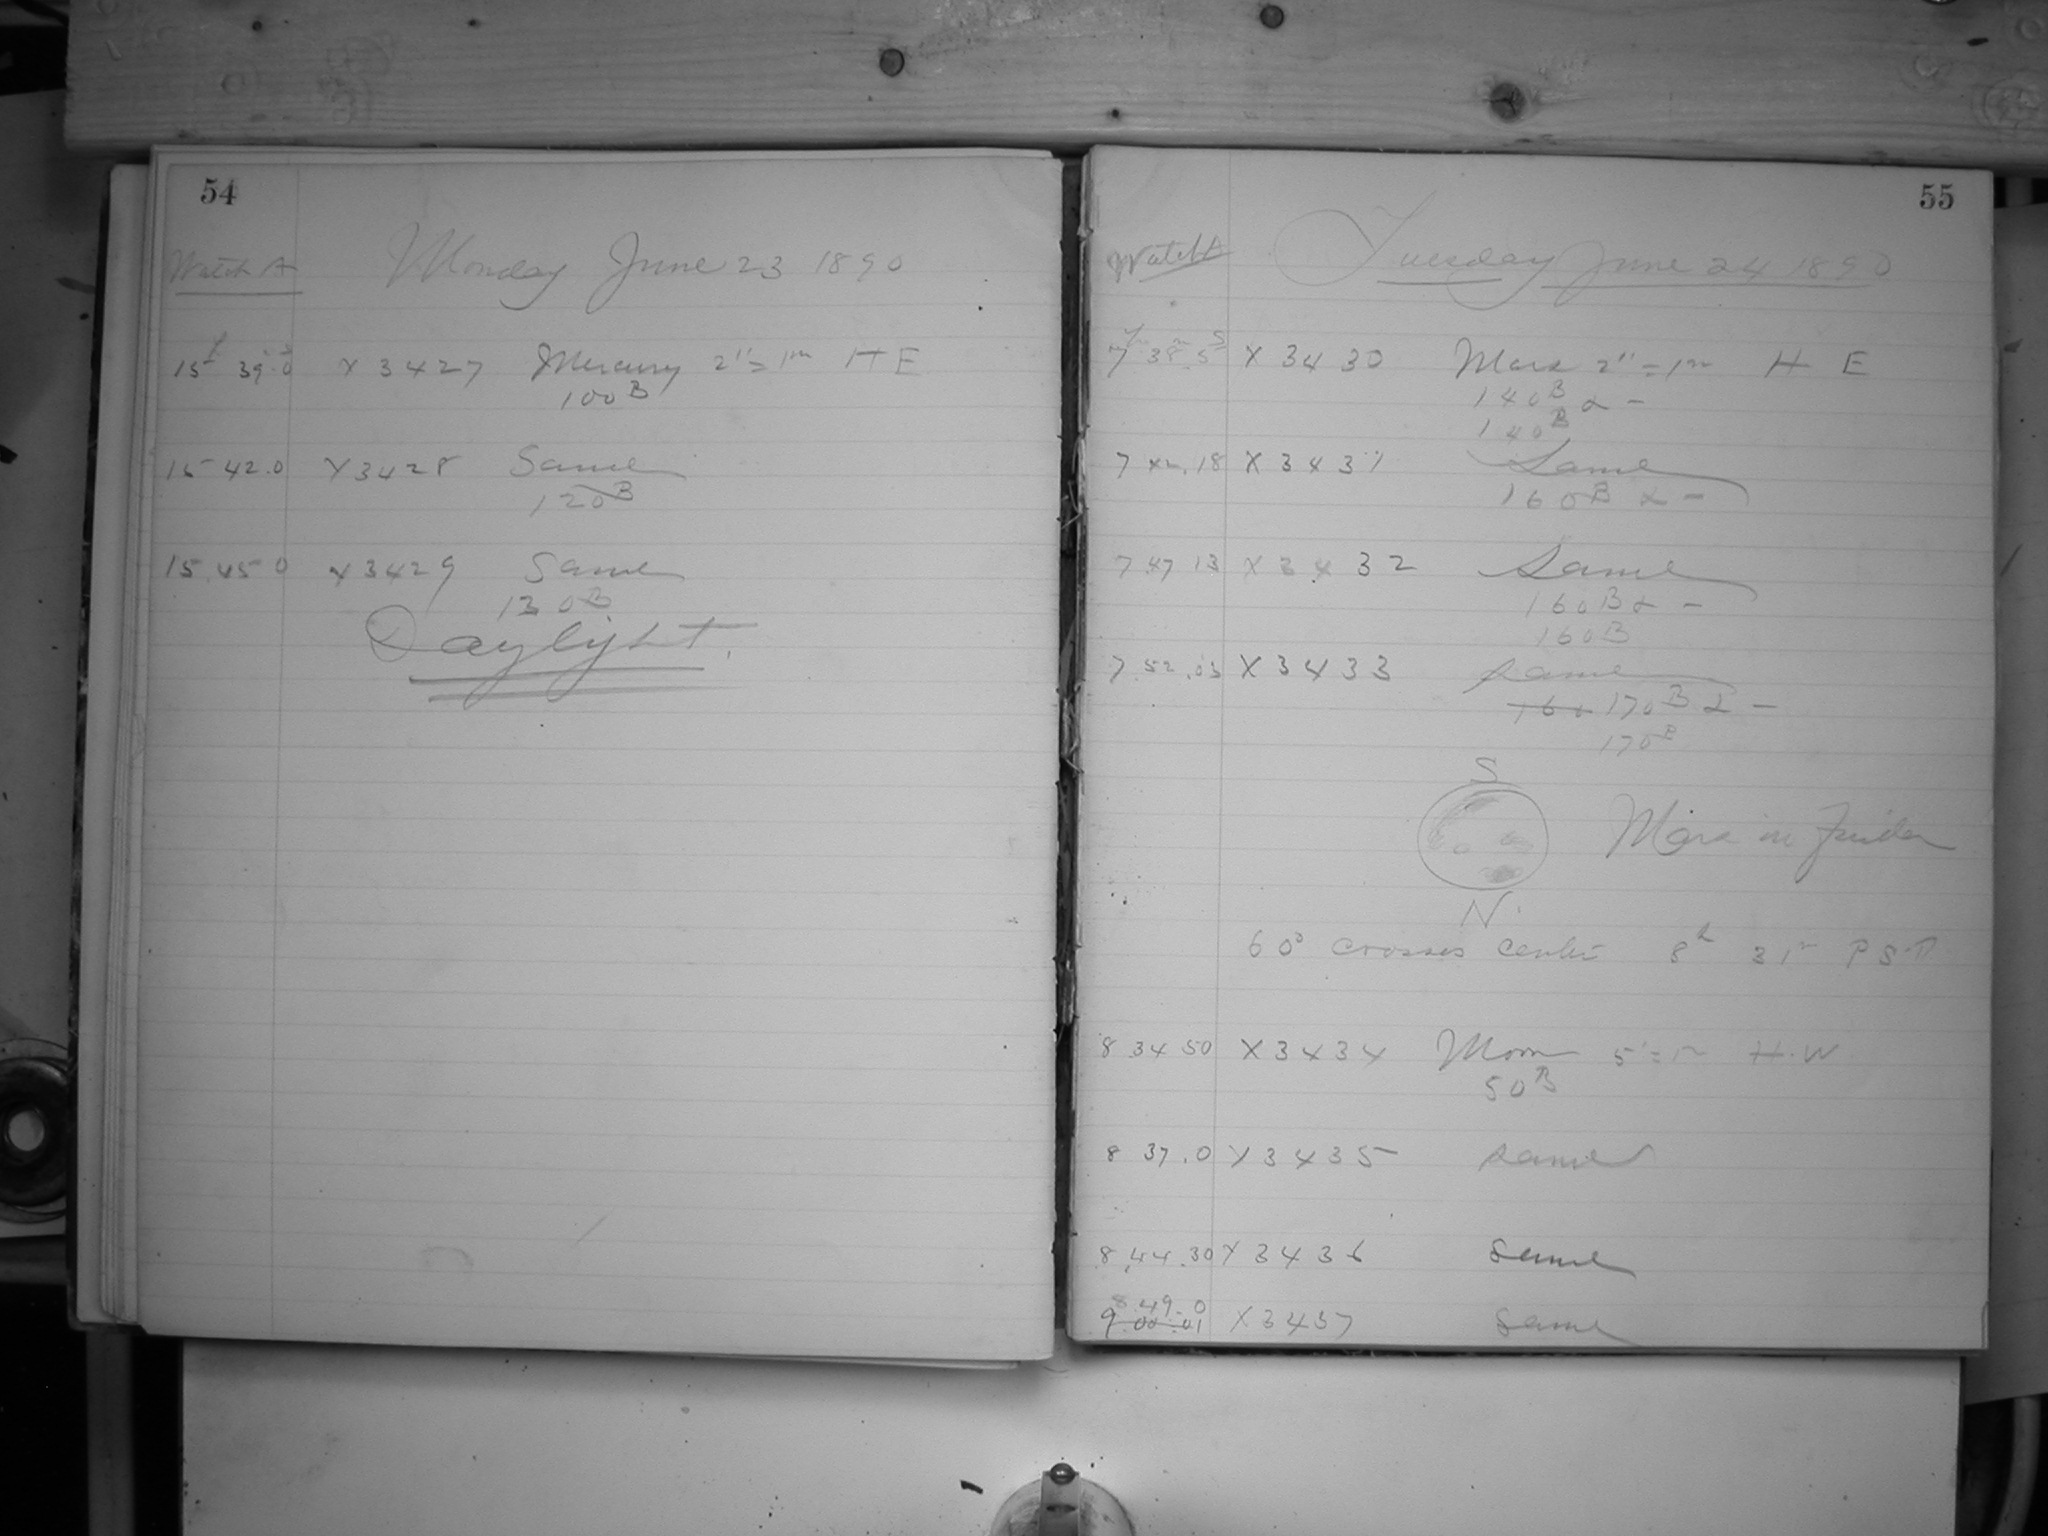 54
Watch A Monday June 23 1890
15h 39.0 X 3427 Mercury 2" = 1m H E
100B
15 42.0 X3428 Same
120B
15 45 0 X3429 Same
130B
Daylight.
55
Watch A Tuesday June 24 1890
7 38m 5s X 3430 Mars 2" = 1m H E
140B α -
140B
7 42.18 X 3431 Same
160B α -
7 47 13 X 3432 Same
160B α -
160B
7 52.03 X 3433 Same
160 170B α -
170B
S
Mars in finder
N
60° crosses center 8h 31m P S T
8 34 50 X3434 Moon 5' = 1m H. W
50B
8 37.0 X3435 Same
8 44.30 X3436 Same
8.49.0
9 00 01 X3437 Same